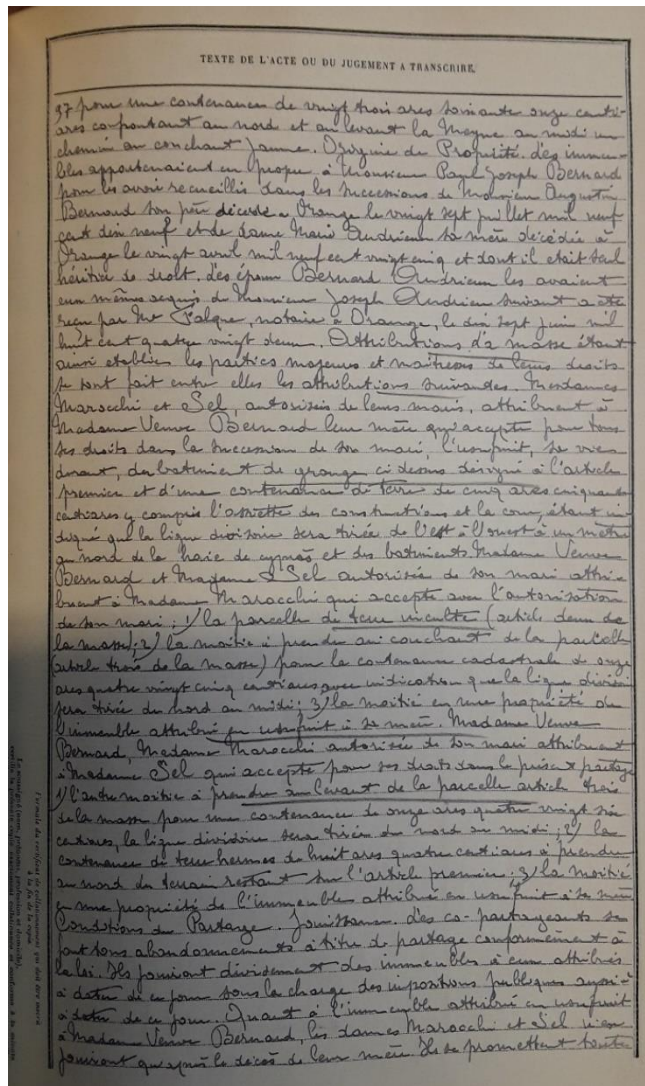 TEXTE DE L'ACTE OU DU JUGEMENT A TRANSCRIRE.
37 pour une contenance de vingt trois ares soixante onze centi-
ares confrontant au nord et au levant la Mayne au midi un
chemin au couchant Jaume. Origine de Propriété. des immeu-
bles appartenaient en propre à Monsieur Paul Joseph Bernard
pour les avoir recueillis dans les successions de Monsieur Augustin
Bernard son père décédé à Orange le vingt sept juillet mil neuf
cent dix neuf et de dame Marie Andrieu sa mère décédée à
Orange le vingt avril mil neuf cent vingt cinq et dont il était seul
héritier de droit. des époux Bernard Andrieu les avaient
eux mêmes acquis de Monsieur Joseph Andrieu suivant acte
reçu par Me Falque, notaire à Orange, le dix sept juin mil
huit cent quatre vingt deux. Attributions da masse étant
ainsi établies les parties majeurs et maîtresses de leurs droits
se sont fait entre elles les attributions suivantes. Mesdames
Marocchi et Sel, autorisées de leurs maris, attribuent à
Madame Veuve Bernard leur mère qui accepte pour tous
ses droits dans la succession de son mari, l'usufruit, sa vie
durant, du batiment de grange ci dessus désigné à l'article
premier et d'une contenance de terre de cinq ares cinquante
centiares y compris l'assiette des constructions et la cour, étant in-
diqué que la ligne divisoire sera tirée de l'est à l'ouest à un mètre
au nord de la haie de cyprès et des batiments. Madame Veuve
Bernard et Madame Sel autorisée de son mari attri-
buent à Madame Marocchi qui accepte avec l'autorisation
de son mari : 1) la parcelle de terre inculte (article deux de
la masse); 2) la moitié à prendre au couchant de la parcelle
(article trois de la masse) pour la contenance cadastrale de onze
ares quatre vingt cinq centiares avec indication que la ligne divisoire
sera tirée du nord au midi; 3) la moitié en nue propriété de
l'immeuble attribué en usufruit à sa mère. Madame Veuve
Bernard, Madame Marocchi autorisée de son mari attribuent
à Madame Sel qui accepte pour ses droits dans le présent partage
1) l'autre moitié à prendre au levant de la parcelle article trois
de la masse pour une contenance de onze ares quatre vingt six
centiares, la ligne dividoire sera tirée du nord au midi; 2) la
contenance de terre hermes de huit ares quatre centiares à prendre
au nord du terrain restant sur l'article premier; 3) la moitié
en nue propriété de l'immeubles attribué en usufruit à sa mère
Conditions du Partage. Jouissance. des co-partageants se
font tous abandonnements à titre de partage conformément à
la loi. Ils jouiront divisément des immeubles à eux attribués
à dater de ce jour sous la charge des impositions publiques aussi à
à dater de ce jour. Quant à l'immeuble attribué en usufruit
à Madame Veuve Bernard, les dames Marocchi et Sel n'en
jouiront qu'après le décès de leur mère. Ils se promettent toute
Formule du certificat de collationnement qui doit être inséré
à la fin de la copie